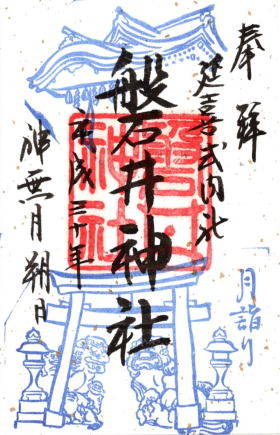 奉拝
延喜式内社
磐井神社
平成三十年
神無月朔日
月詣り
磐井神社